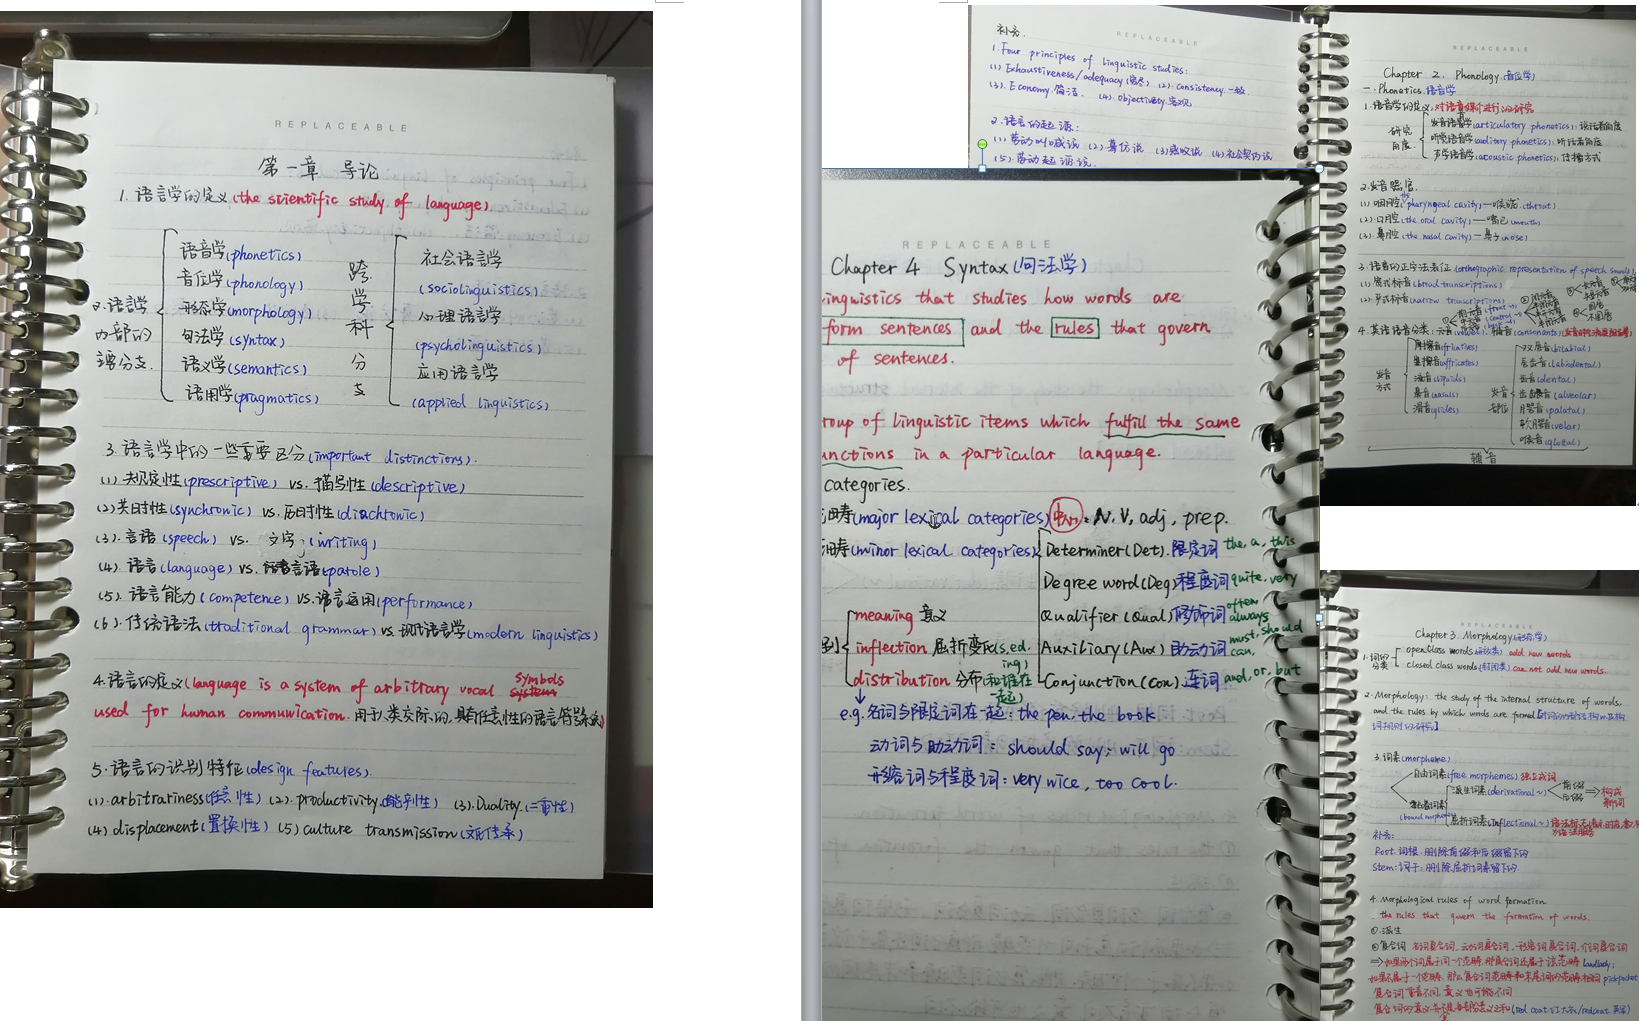 REPLACEABLE
第一章 导论
1. 语言学的定义(the scientific study of language)
2.语言学内部的主要分支.
语音学(phonetics)
音位学(phonology)
形态学(morphology)
句法学(syntax)
语义学(semantics)
语用学(pragmatics)
跨学科分支
社会语言学
(sociolinguistics)
心理语言学
(psycholinguistics)
应用语言学
(applied linguistics)
3. 语言学中的一些重要区分(important distinctions).
(1) 规定性(prescriptive) vs. 描写性(descriptive)
(2) 共时性(synchronic) vs. 历时性(diachronic)
(3). 言语(speech) vs. 文字(writing)
(4). 语言(language) vs. 言语(parole)
(5). 语言能力(competence) vs. 语言运用(performance)
(6). 传统语法(traditional grammar) vs. 现代语言学(modern linguistics)
4.语言的定义(language is a system of arbitrary vocal symbols
used for human communication. 用于人类交际的,具有任意性的语言符号系统)
5. 语言的识别特征(design features).
(1). arbitrariness(任意性) (2). productivity(能产性) (3). Duality.(二重性)
(4) displacement(置换性) (5) culture transmission(文化传承)
REPLACEABLE
补充.
1. Four principles of linguistic studies:
(1) Exhaustiveness/adequacy(穷尽) (2). consistency. 一致.
(3). Economy. 简洁. (4). Objectivity. 客观
2. 语言的起源:
(1) 劳动叫喊说 (2) 摹仿说 (3) 感叹说 (4) 社会契约说
(5). 劳动起源说.
REPLACEABLE
Chapter 2. Phonology.(音位学)
一. Phonetics. 语音学
1. 语音学的定义: 对语音媒介进行的研究
研究角度
发音语音学(articulatory phonetics): 说话者角度
听觉语音学(auditory phonetics): 听话者角度
声学语音学(acoustic phonetics): 传播方式
2. 发音器官.
(1) 咽腔(the pharyngeal cavity)—喉咙(throat)
(2). 口腔(the oral cavity)—嘴巴(mouth)
(3). 鼻腔(the nasal cavity)—鼻子(nose)
3. 语音的正字法表征(orthographic representation of speech sounds)
(1). 宽式标音(broad transcriptions)
(2). 严式标音(narrow transcriptions)
4. 英语语音分类: 元音(vowel) 辅音(consonants)
发音方式
摩擦音(fricatives)
塞擦音(affricates)
流音(liquids)
鼻音(nasals)
滑音(glides)
发音部位
双唇音(bilabial)
唇齿音(labiodental)
齿音(dental)
齿龈音(alveolar)
腭音(palatal)
软腭音(velar)
喉音(glottal)
辅音
REPLACEABLE
Chapter 4 Syntax(句法学)
linguistics that studies how words are
form sentences and the rules that govern
of sentences.
roup of linguistic items which fulfill the same
unctions in a particular language.
categories.
畴(major lexical categories) N, V, adj, prep.
畴(minor lexical categories)
Determiner(Det). 限定词 the, a, this
Degree word(Deg)程度词 quite, very
Qualifier(Qual)修饰词 often always
Auxiliary(Aux) 助动词 must, should can,
Conjunction(Con). 连词 and, or, but
meaning 意义
inflection 屈折变化(s, ed, ing)
distribution 分布(和谁在一起)
e.g. 名词与限定词在一起: the pen, the book
动词与助动词: should say; will go
形容词与程度词: very nice, too cool.
REPLACEABLE
Chapter 3. Morphology(形态学)
1. 词的分类
open class words(开放类) add new words
closed class words(封闭类) can not add new words.
2. Morphology: the study of the internal structure of words,
and the rules by which words are formed
3. 词素(morpheme)
自由词素(free morphemes) 独立成词
黏着词素(bound morpheme)
派生词素(derivational ~) 前缀 后缀 ⇒ 构成新词
屈折词素(inflectional ~)
补充:
Root 词根: 删除前缀和后缀留下的
Stem: 词干: 删除屈折词素留下的
4. Morphological rules of word formation
the rules that govern the formation of words.
①. 派生
② 复合词 名词复合词, 动词复合词, 形容词复合词, 介词复合词
⇒ 如果两个词属于同一个范畴, 那复合词还属于该范畴 landlady;
如果不属于一个范畴, 那么复合词范畴和末尾词的范畴相同 pickpocket
复合词重音不同, 意义也可能不同